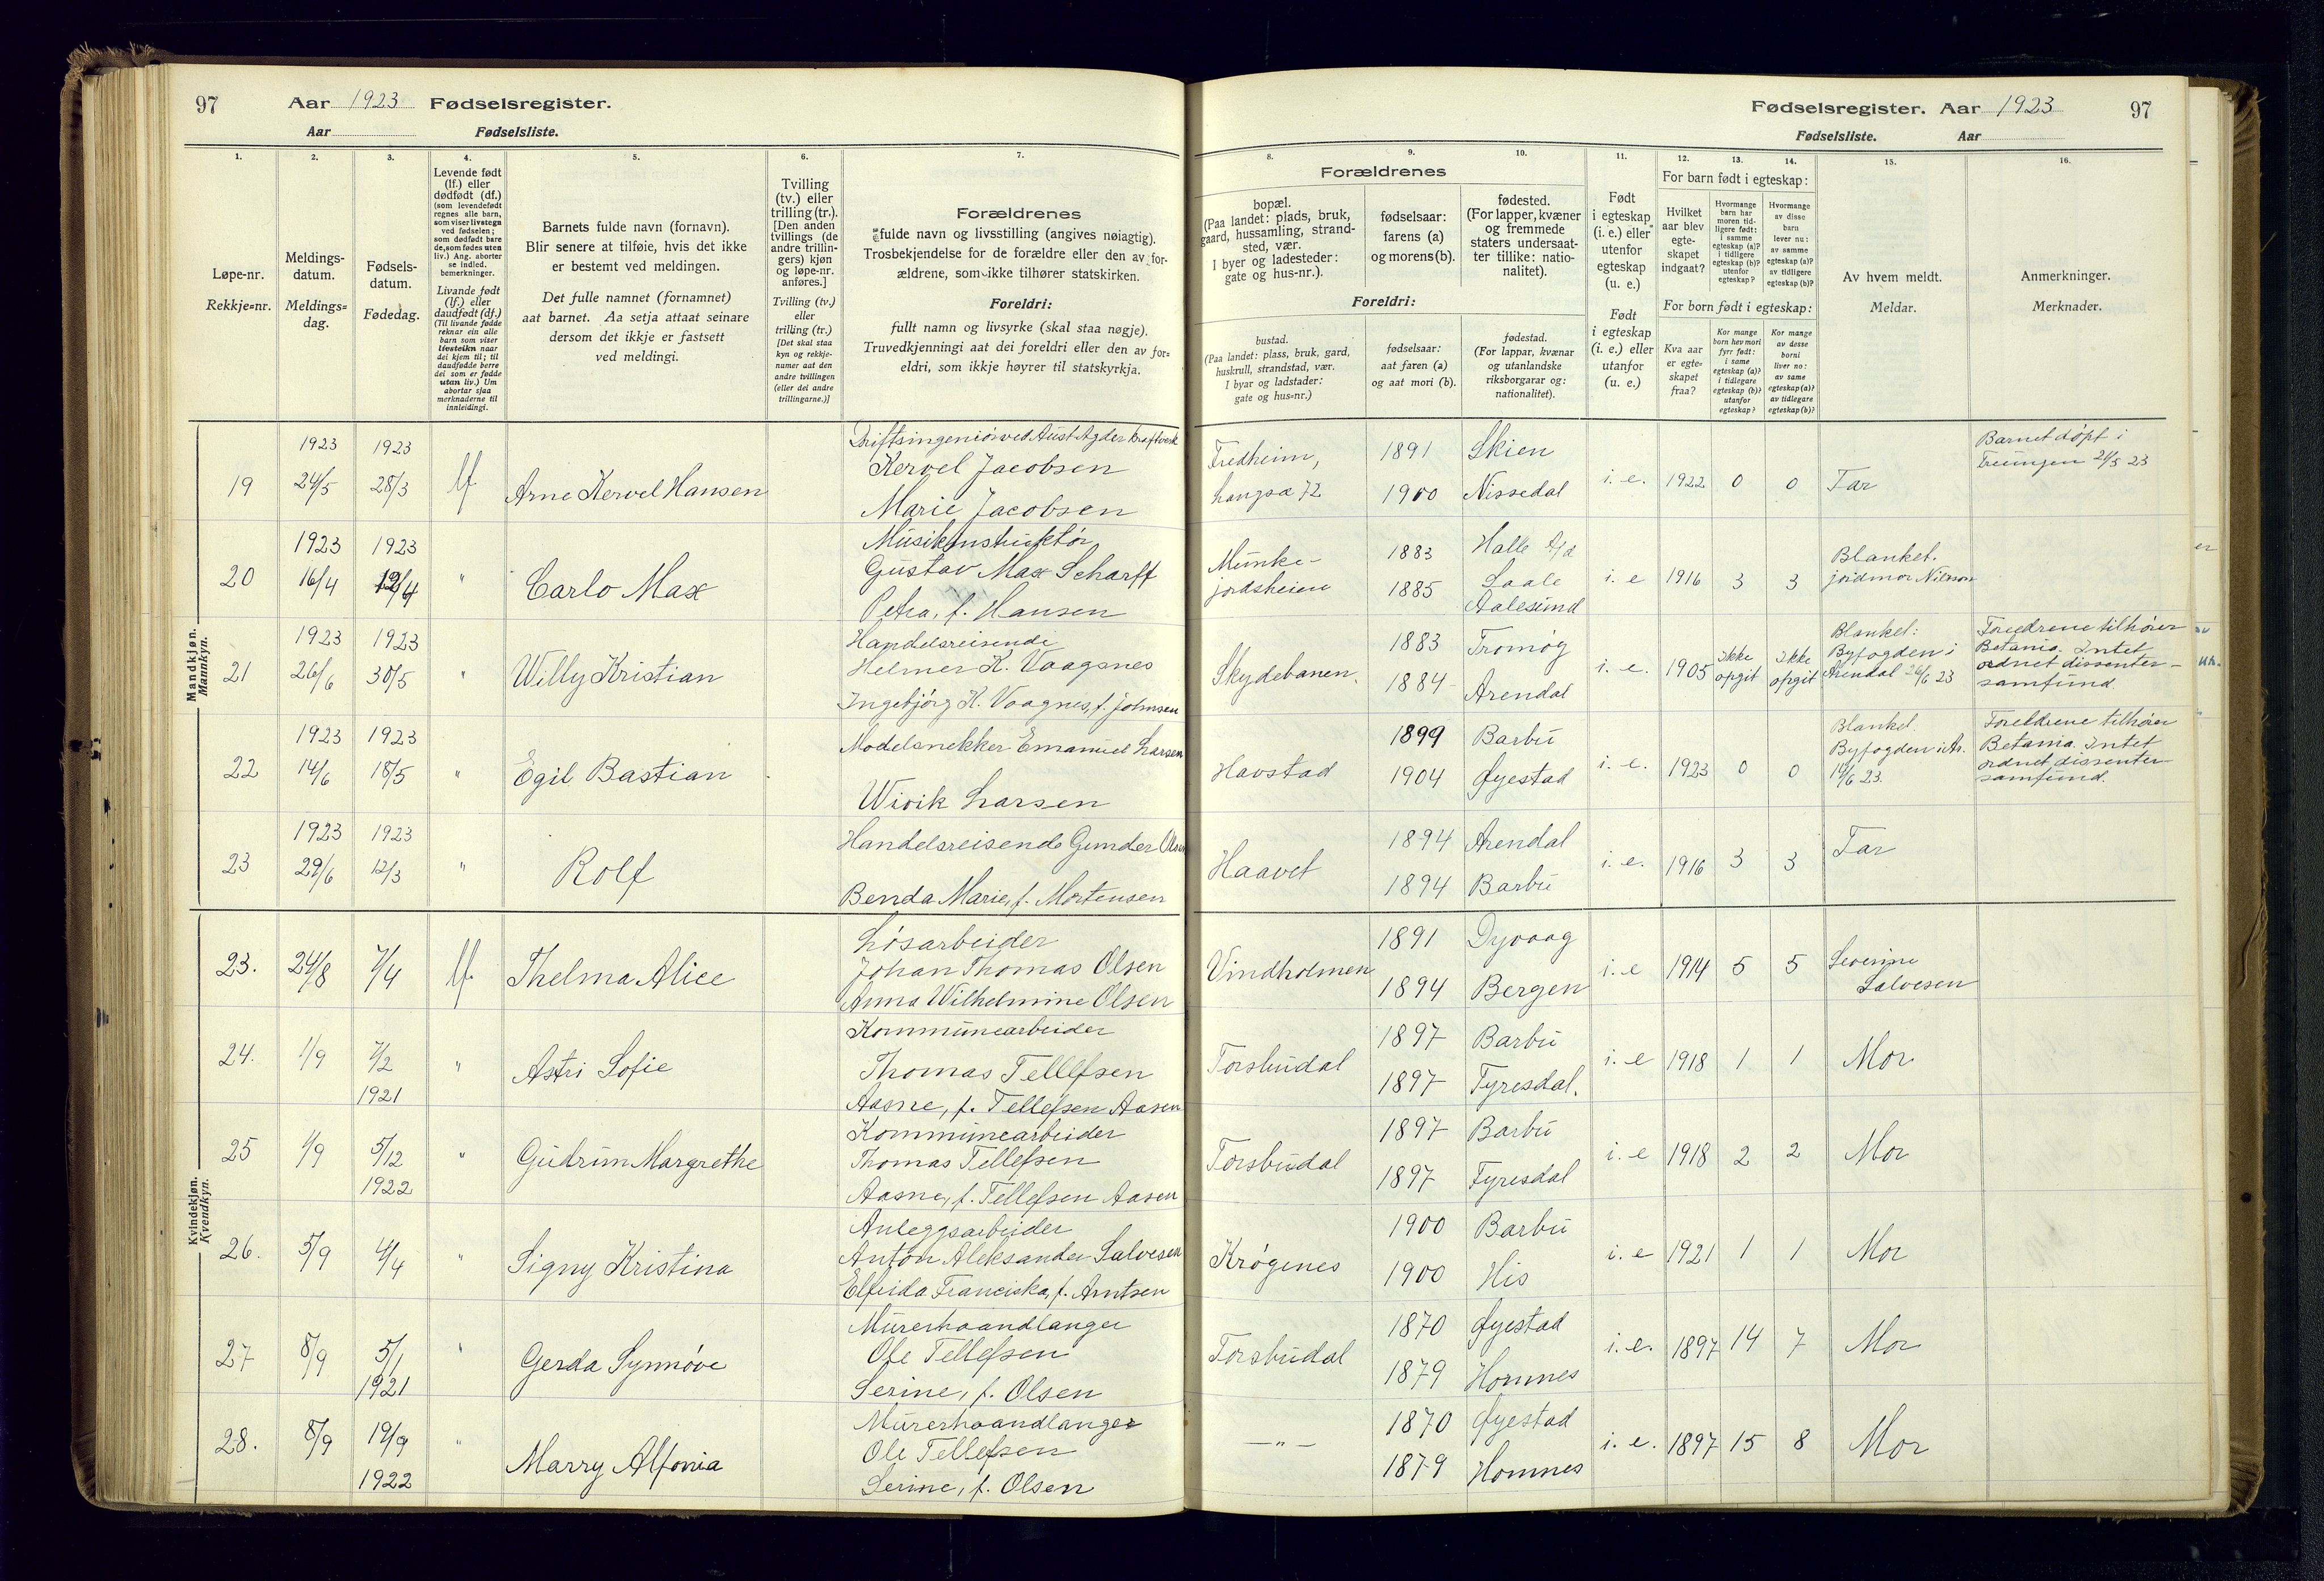 97 Aar 1923 Fødselsregister.
Aar Fødselsliste.
Fødselsregister. Aar 1923 97
Fødselsliste. Aar
1. 2. 3. 4. 5. 6. 7.
Løpe-nr.
Rekkje=nr.
Meldings-
datum.
Meldings=
dag.
Fødsels-
datum.
Fødedag.
Levende født
(lf.) eller
dødfødt (df.)
(som levendefødt
regnes alle barn,
som viser livstegn
ved fødselen;
som dødfødt bare
de, som fødes uten
liv.) Ang. aborter
se indled.
bemerkninger.
Livande født
(lf.) eller
daudfødt (df.)
(Til livande fødde
reknar ein alle
barn som viser
livsteikn naar
dei kjem til; til
daudfødde berre
dei som er fødde
utan liv.) Um
abortar sjaa
merknaderne til
innleidingi.
Barnets fulde navn (fornavn).
Blir senere at tilføie, hvis det ikke
er bestemt ved meldingen.
Det fulle namnet (fornamnet)
aat barnet. Aa setja attaat seinare
dersom det ikkje er fastsett
ved meldingi.
Tvilling
(tv.) eller
trilling (tr.).
[Den anden
tvillings (de
andre trillin-
gers) kjøn
og løpe-nr.
anføres.]
Tvilling (tv.)
eller
trilling (tr.)
[Det skal staa
kyn og rekkje-
numer aat den
andre tvillingen
(eller dei andre
trillingarne.)]
Forældrenes
fulde navn og livsstilling (angives nøiagtig).
Trosbekjendelse for de forældre eller den av for-
ældrene, som ikke tilhører statskirken.
Foreldri:
fullt namn og livsyrke (skal staa nøgje).
Truvedkjenningi aat dei foreldri eller den av for=
eldri, som ikkje høyrer til statskyrkja.
8. 9. 10. 11. 12. 13. 14. 15. 16.
Forældrenes
bopæl.
(Paa landet: plads, bruk,
gaard, hussamling, strand-
sted, vær.
I byer og ladesteder:
gate og hus-nr.).
fødselsaar:
farens (a)
og morens (b).
fødested.
(For lapper, kvæner
og fremmede
staters undersaat-
ter tillike: natio-
nalitet).
Foreldri:
bustad.
(Paa landet: plass, bruk, gard,
huskrull, strandstad, vær.
I byar og ladstader:
gate og hus=nr.)
fødselsaar:
aat faren (a)
og aat mori (b).
fødestad.
(For lappar, kvænar
og utanlandske
riksborgarar og:
nationalitet).
Født
i egteskap
(i. e.) eller
utenfor
egteskap
(u. e.)
Født
i egteskap
(i. e.) eller
utanfor
(u. e.)
For barn født i egteskap:
Hvilket
aar blev
egte-
skapet
indgaat?
Hvormange
barn har
moren tid-
ligere født:
i samme
egteskap (a)?
i tidligere
egteskap (b)?
utenfor
egteskap?
Hvormange
av disse
barn
lever nu:
av samme
egteskap (a)?
av tidligere
egteskap (b)?
For born født i egteskap:
Kva aar
er egte-
skapet
fraa?
Kor mange
born hev mori
fyrr født:
i same
egteskap (a)?
i tidlegare
egteskap (b)?
utanfor
egteskap?
Kor mange
av desse
borni
liver no:
av same
egteskap (a)?
av tidlegare
egteskap (b)?
Av hvem meldt.
Meldar.
Anmerkninger.
Merknader.
Mandkjøn.
Mannkyn.
19 1923 24/5 1923 28/3 lf Arne Kervel Hansen
Driftsingeniør ved Aust Agder kraftverk
Kervel Jacobsen
Marie Jacobsen
Fredheim,
Langsæ 72
1891 Skien
1900 Nissedal
i. e. 1922 0 0 Far
Barnet døpt i
Treungen 21/5 23
20 1923 16/4 1923 12/4 " Carlo Max
Musikinstruktør
Gustav Max Scharff
Petra, f. Hansen
Munke-
jordsheien
1883 Halle a/d
1885 Saale
Aalesund
i. e 1916 3 3
Blanket.
jordmor Nilsson
21 1923 26/6 1923 30/5 " Willy Kristian
Handelsreisende
Helmer K. Vaagsnes
Ingebjørg K. Vaagnes, f. Johnsen
Skydebanen.
1883 Tromøy
1884 Arendal
i. e. 1905 ikke opgit ikke opgit
Blanket:
Byfogden i
Arendal 26/6 23
Foreldrene tilhører
Betania. Intet
ordnet dissenter-
samfund.
22 1923 14/6 1923 18/5 " Egil Bastian
Modelsnekker Emanuel Larsen
Wivik Larsen
Havstad
1899 Barbu
1904 Øyestad
i. e. 1923 0 0
Blanket.
Byfogden i Ar.
14/6 23.
Foreldrene tilhører
Betania. Intet
ordnet dissenter
samfund.
23 1923 29/6 1923 12/3 " Rolf
Handelsreisende Gunder Olsen
Benda Marie, f. Mortensen
Haavet
1894 Arendal
1894 Barbu
i. e. 1916 3 3 Far
Kvindekjøn.
Kvendkyn.
23. 24/8 7/4 lf. Thelma Alice
Løsarbeider
Johan Thomas Olsen
Anna Wilhelmine Olsen
Vindholmen
1891 Dyvaag
1894 Bergen
i. e 1914 5 5
Severine
Salvesen
24. 1/9 7/2 1921 " Astri Sofie
Kommunearbeider
Thomas Tellefsen
Aasne, f. Tellefsen Aasen
Torsbudal
1897 Barbu
1897 Fyresdal.
i. e 1918 1 1 Mor
25 1/9 5/12 1922 " Gudrun Margrethe
Kommunearbeider
Thomas Tellefsen
Aasne, f. Tellefsen Aasen
Torsbudal
1897 Barbu
1897 Fyresdal
i. e 1918 2 2 Mor
26. 5/9 4/4 " Signy Kristina
Anleggsarbeider
Anton Aleksander Salvesen
Elfrida Franciska, f. Arntsen
Krøgenes
1900 Barbu
1900 His
i. e 1921 1 1 Mor
27 8/9 5/1 1921 " Gerda Synnøve
Murerhaandlanger
Ole Tellefsen
Serine, f. Olsen
Torsbudal
1870 Øyestad
1879 Hommes
i. e. 1897 14 7 Mor
28. 8/9 19/9 1922 " Marry Alfonia
Murerhaandlanger
Ole Tellefsen
Serine, f. Olsen
— " —
1870 Øyestad
1879 Hommes
i. e. 1897 15 8 Mor